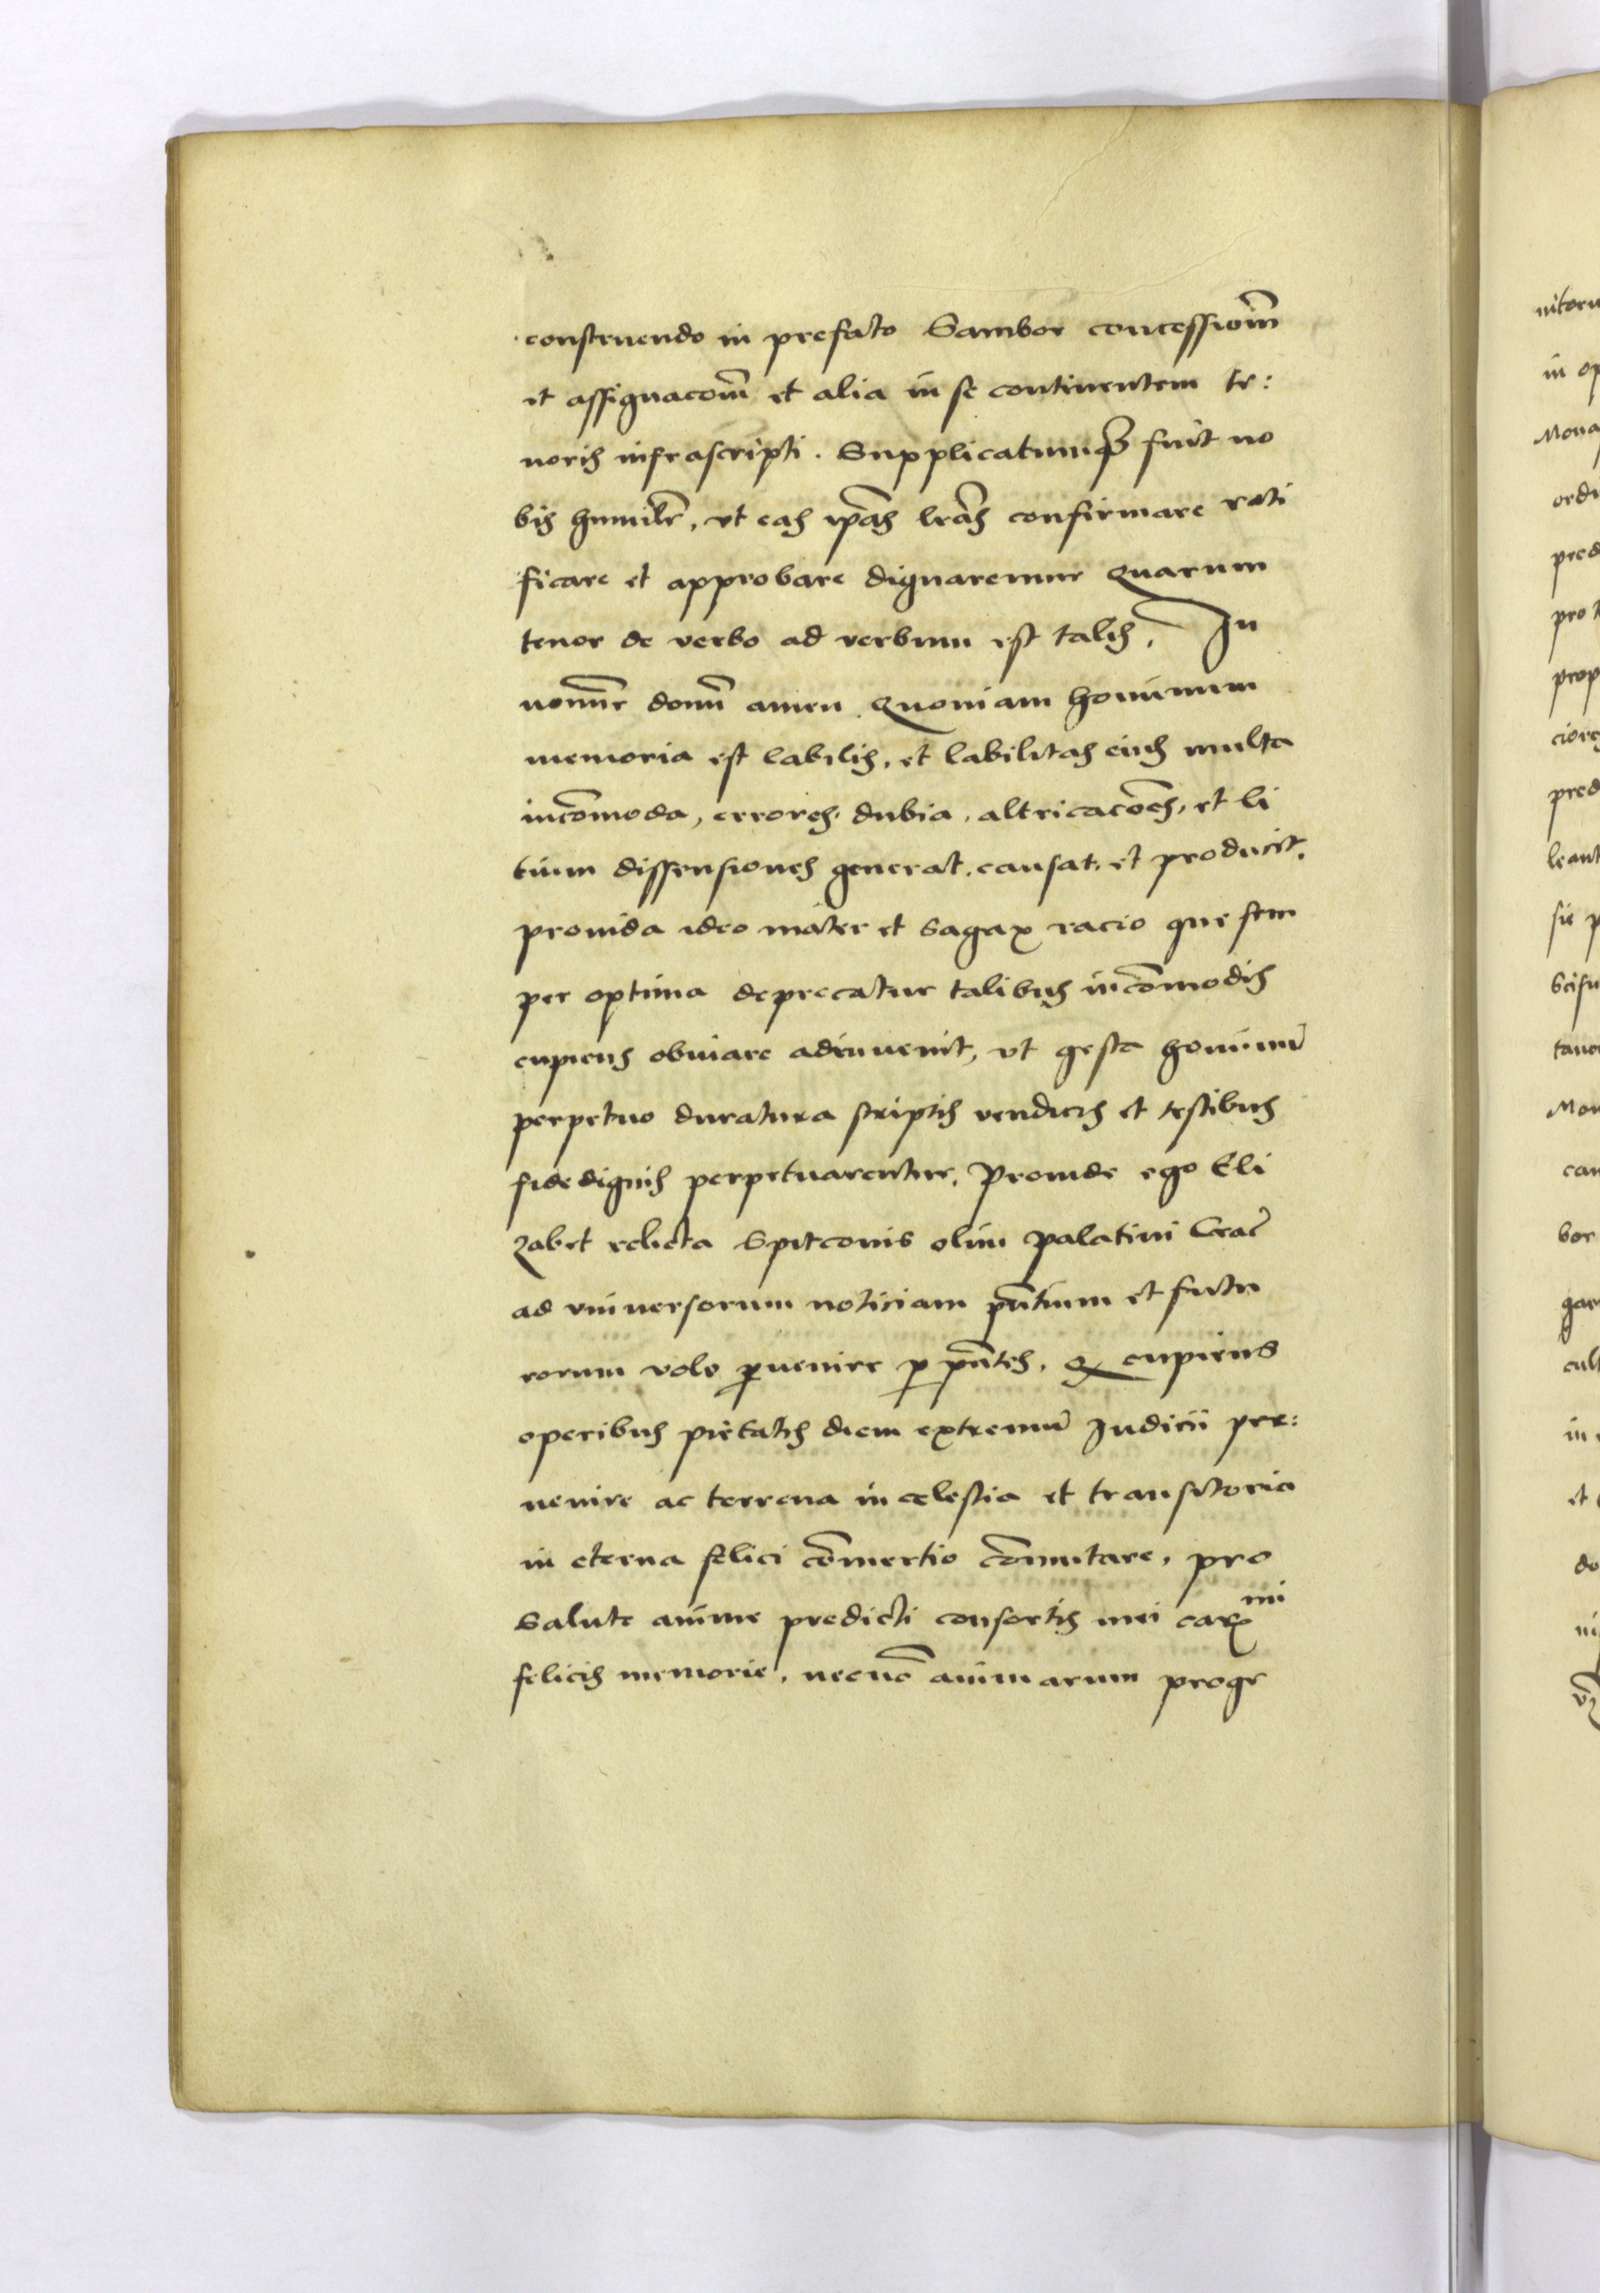 construendo in prefato Sambor concessiom̄
et assignacom̄ et alia in se continentem te:
noris infrascripti. Supplicatumqꝫ fuit no
bis humilr̄, vt eas ip̄as lr̄as confirmare rati
ficare et approbare dignaremur Quarum
tenor de verbo ad verbum est talis, In
nomīe domī amen Quoniam hominum
memoria est labilis, et labilitas eius multa
incōmoda, errores, dubia, altricacōes, et li
tium dissensiones generat, causat, et producit,
prouida ideo mater et Sagax racio que sem
per optima deprecatur talibus incōmodis
cupiens obuiare adinuenit, vt gesta hominū
perpetuo duratura scriptis veridicis et testibus
fidedignis perpetuarentur, Proinde ego Eli
zabet relicta Spitconis olim palatini Crac̄
ad vniuersorum noticiam pn̄tium et futu
rorum volo ꝑuenire ꝑ pn̄tes, Qꝫ cupiens
operibus pietatis diem extremū Judicii pre:
uenire ac terrena in celestia et transitoria
in eterna felici cōmertio cōmutare, pro
Salute anime predicti consortis mei carꝫᵐⁱ
felicis memorie, necnō animarum proge
nitoru
in op
Mona
ordi
pred
pro t
prop
ciores
pred
leant
sie p
Scifu
tanc
Mon
can
bor
gar
cult
in
et
do